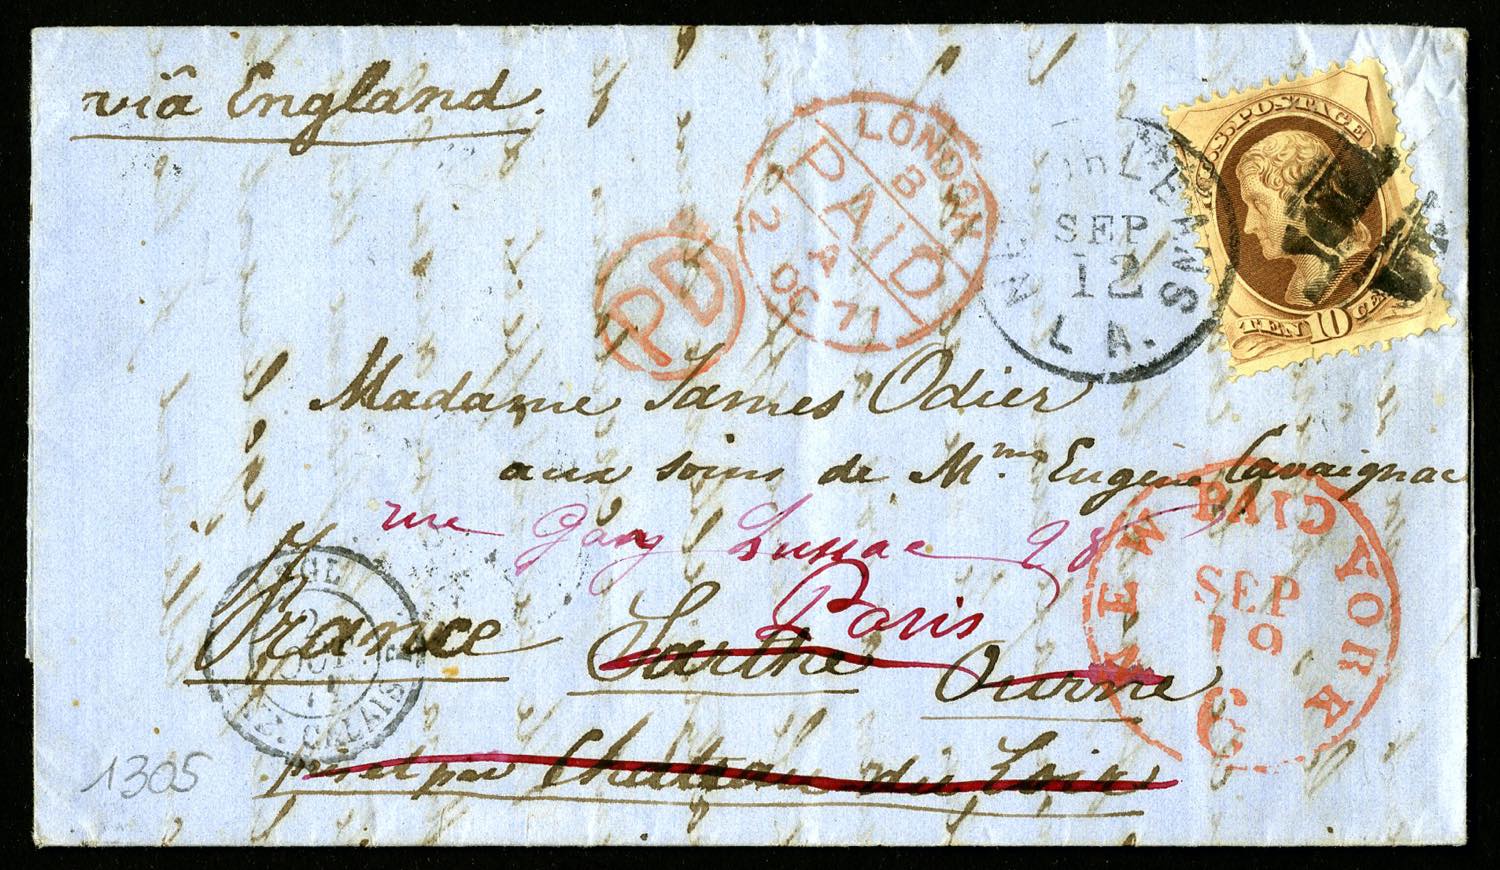 viâ England.
U.S. POSTAGE
TEN 10 CENTS
NEW ORLEANS
SEP
12
LA.
LONDON
B
PAID
2 A
OC 71
PD
Madame James Odier
aux soins de Mme Eugène Cavaignac
rue Gay Lussac 28
Paris
France Sarthe Ourne
par Château du Loir
NEW YORK
PAID
SEP
19
C
ANGL.
OCT
71
CALAIS
1305